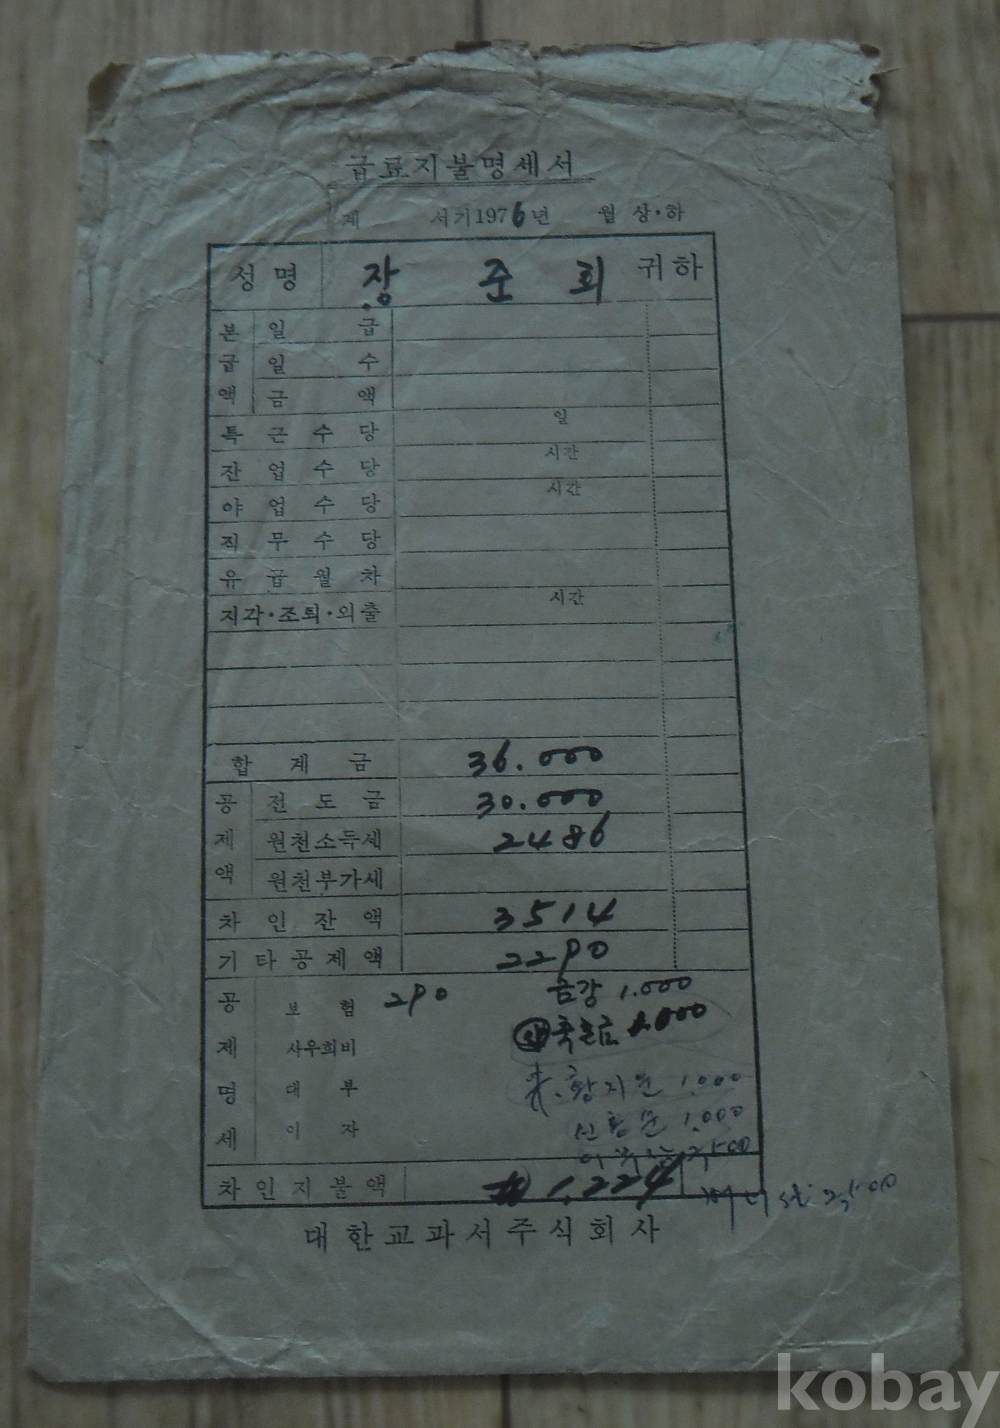 급료지불명세서
제 서기1976년 월 상·하
성명 장준희 귀하
본급액 일급
일수
금액
특근수당 일
잔업수당 시간
야업수당 시간
직무수당
유급월차
지각·조퇴·외출 시간
합계금 36.000
공제액 전도금 30.000
원천소득세 2486
원천부가세
차인잔액 3514
기타공제액 2290
공제명세 보험 290 금강 1.000
사우회비 축하금 1.000
대부 황지윤 1.000
이자 1,000
2,500
차인지불액 1,224
대한교과서주식회사
kobay